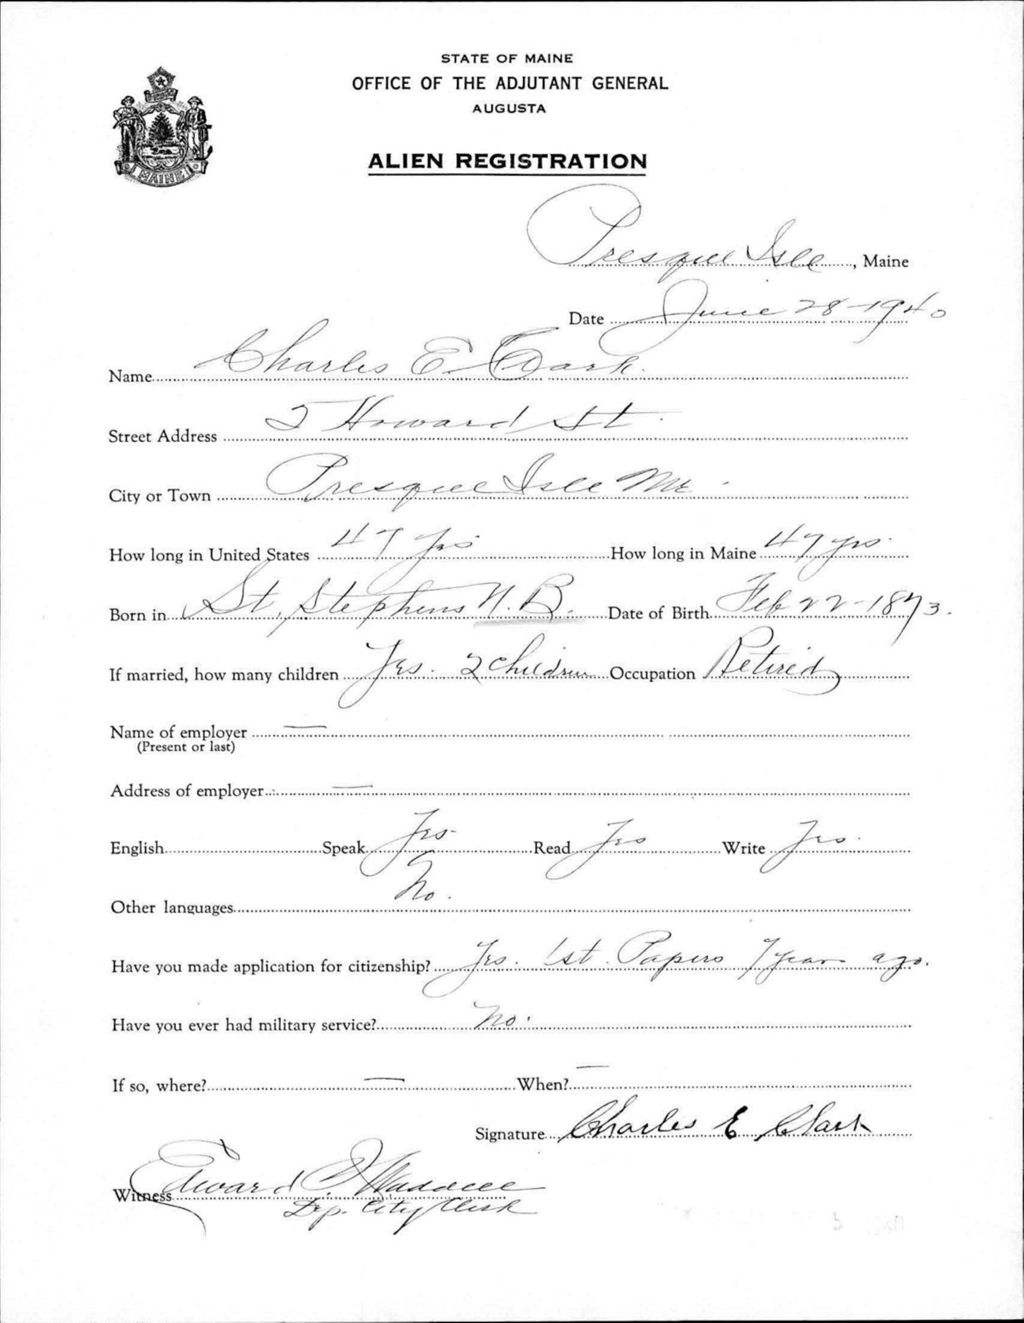 STATE OF MAINE
OFFICE OF THE ADJUTANT GENERAL
AUGUSTA
MAINE
ALIEN REGISTRATION
Presque Isle, Maine
Date June 28-1940
Name Charles E. Clark.
Street Address Howard St.
City or Town Presque Isle Me.
How long in United States 47 yrs. How long in Maine 47 yrs.
Born in St. Stephens N.B. Date of Birth Feb 22-1873.
If married, how many children Yes. 2 Children Occupation Retired
Name of employer —
(Present or last)
Address of employer —
English Speak Yes Read Yes Write Yes.
Other languages No.
Have you made application for citizenship? Yes. 1st. Papers 7 years ago.
Have you ever had military service? No.
If so, where? — When? —
Signature Charles E Clark
Witness Edward
Dep. City Clerk